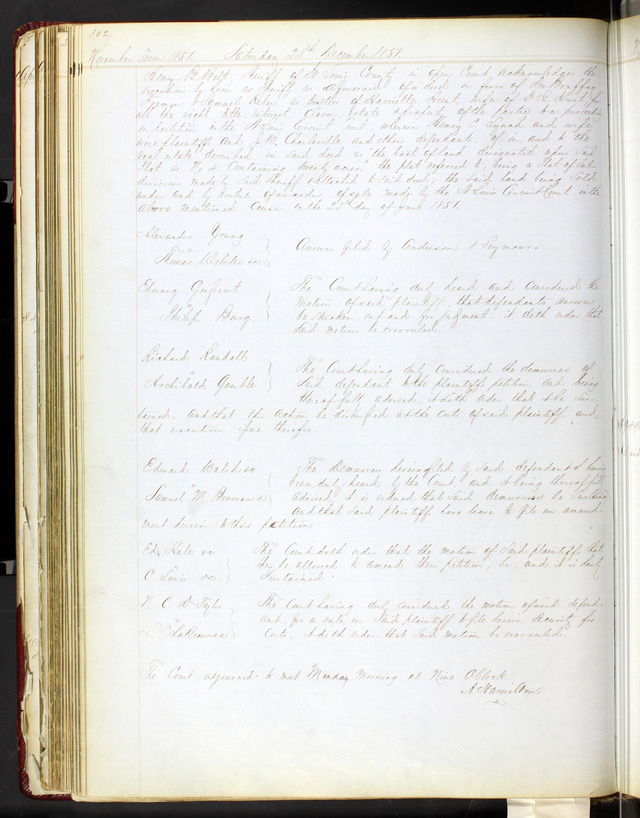 302
November Term 1851. Saturday 20th December 1851.
Henry B. Belt, Sheriff of St Louis County, in open Court, acknowledges the
execution by him as Sheriff as aforesaid of a deed in favor of
and Samuel as trustees of Harriette Hunt, wife of Hunt for
all the right title interest, claim, estate of the parties to a proceeding
in partition in the St Louis Circuit Court wherein Henry Lynch and
were plaintiffs and Chanderville and others defendants of in and to the
real estate described in said deed as the tract of land designated upon said
Plat as No 4 Containing twenty acres. the plat referred to being a Plat of sub-
division made by said Sheriff attached to said deed; the said land being sold
under and by virtue of an order of sale made by the St Louis Circuit Court in the
above mentioned cause on the day of June 1851.
Alexander Young
vs
Thomas Webster &c
Answer filed by Anderson & Seymour.
Edward
vs
Philip Burg
The Court having duly heard and considered the
motion of said plaintiff, that defendants answer
be stricken out and for judgment. it doth order that
said motion be overruled.
Richard Randall
vs
Archibald Gamble
The Court having duly considered the demurrer of
said defendant to the plaintiffs petition and being
thereof fully advised, it doth order that it be sus-
tained. And that the action be dismissed at the costs of said plaintiff, and
that execution issue therefor.
Edward Walsh &c
vs
Samuel M.
The Demurrer herein filed by said defendant having
been duly heard by the Court and it being thereof fully
advised, it is ordered that said demurrer be sustained
And that said plaintiff have leave to file an amend-
ment herein to this petition
Ed. Hale &c
vs
C Lewis &c
The Court doth order that the motion of said plaintiffs that
they be allowed to amend their petition, be, and it is hereby
sustained.
N. C. D. Tyler
vs
The Court having duly considered the motion of said defend-
ant for a rule on said plaintiff to file herein security for
costs, it doth order that said motion be overruled.
The Court adjourned to meet Monday Morning at Nine O'Clock
A Hamilton.